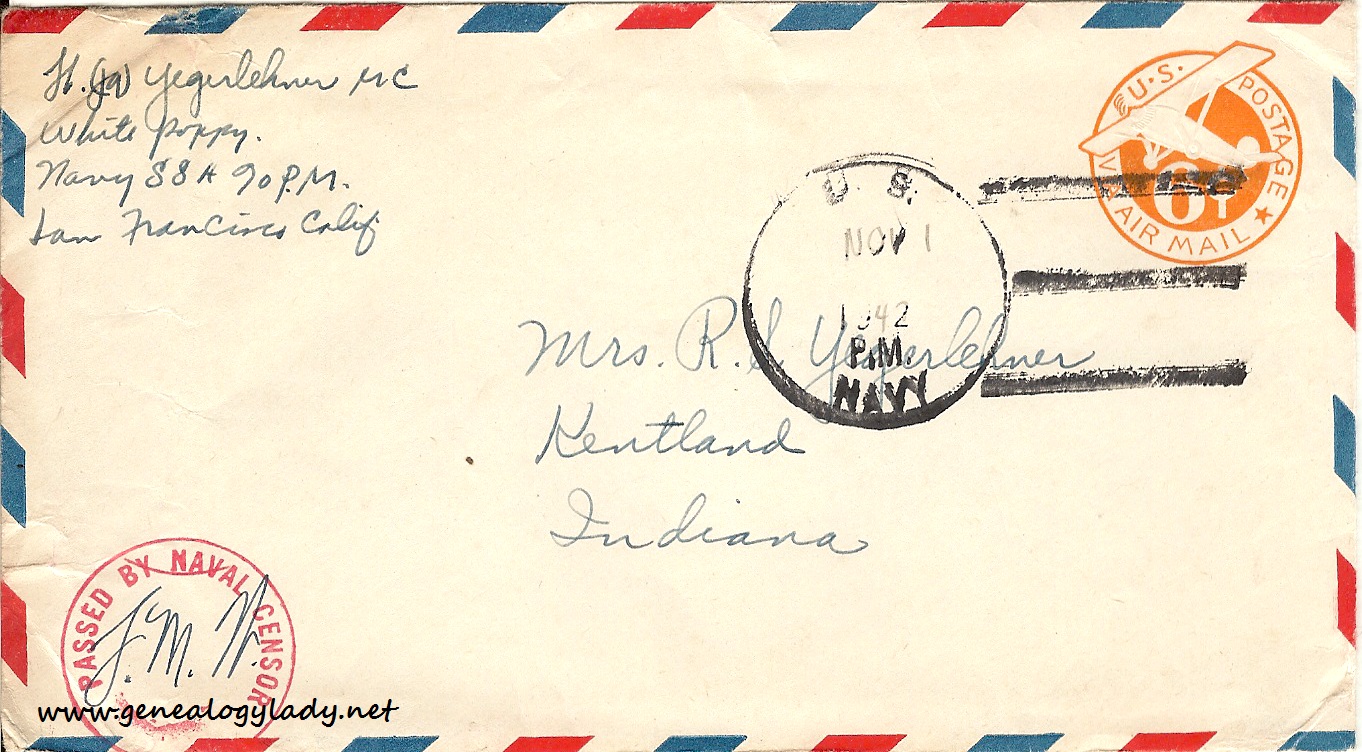 Lt. (jg) Yegerlehner MC
White Poppy.
Navy 88 A 90 P.M.
San Francisco Calif
U.S. POSTAGE
6¢
VIA AIR MAIL
U. S.
NOV 1
1942
P.M.
NAVY
Mrs. R. S Yegerlehner
Kentland
Indiana
PASSED BY NAVAL CENSOR
J. M. W.
www.genealogylady.net